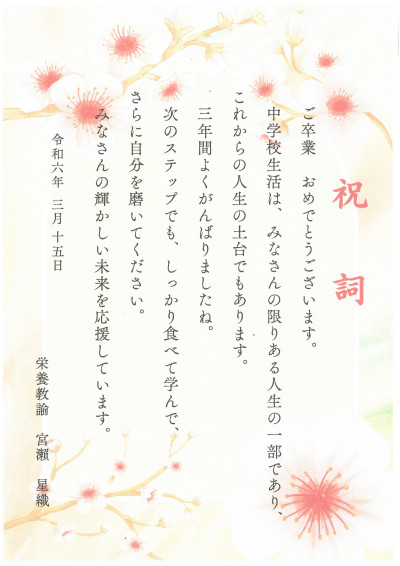 祝詞
ご卒業　おめでとうございます。
中学校生活は、みなさんの限りある人生の一部であり、
これからの人生の土台でもあります。
三年間よくがんばりましたね。
次のステップでも、しっかり食べて学んで、
さらに自分を磨いてください。
みなさんの輝かしい未来を応援しています。
令和六年　三月十五日
栄養教諭　宮瀬　星織